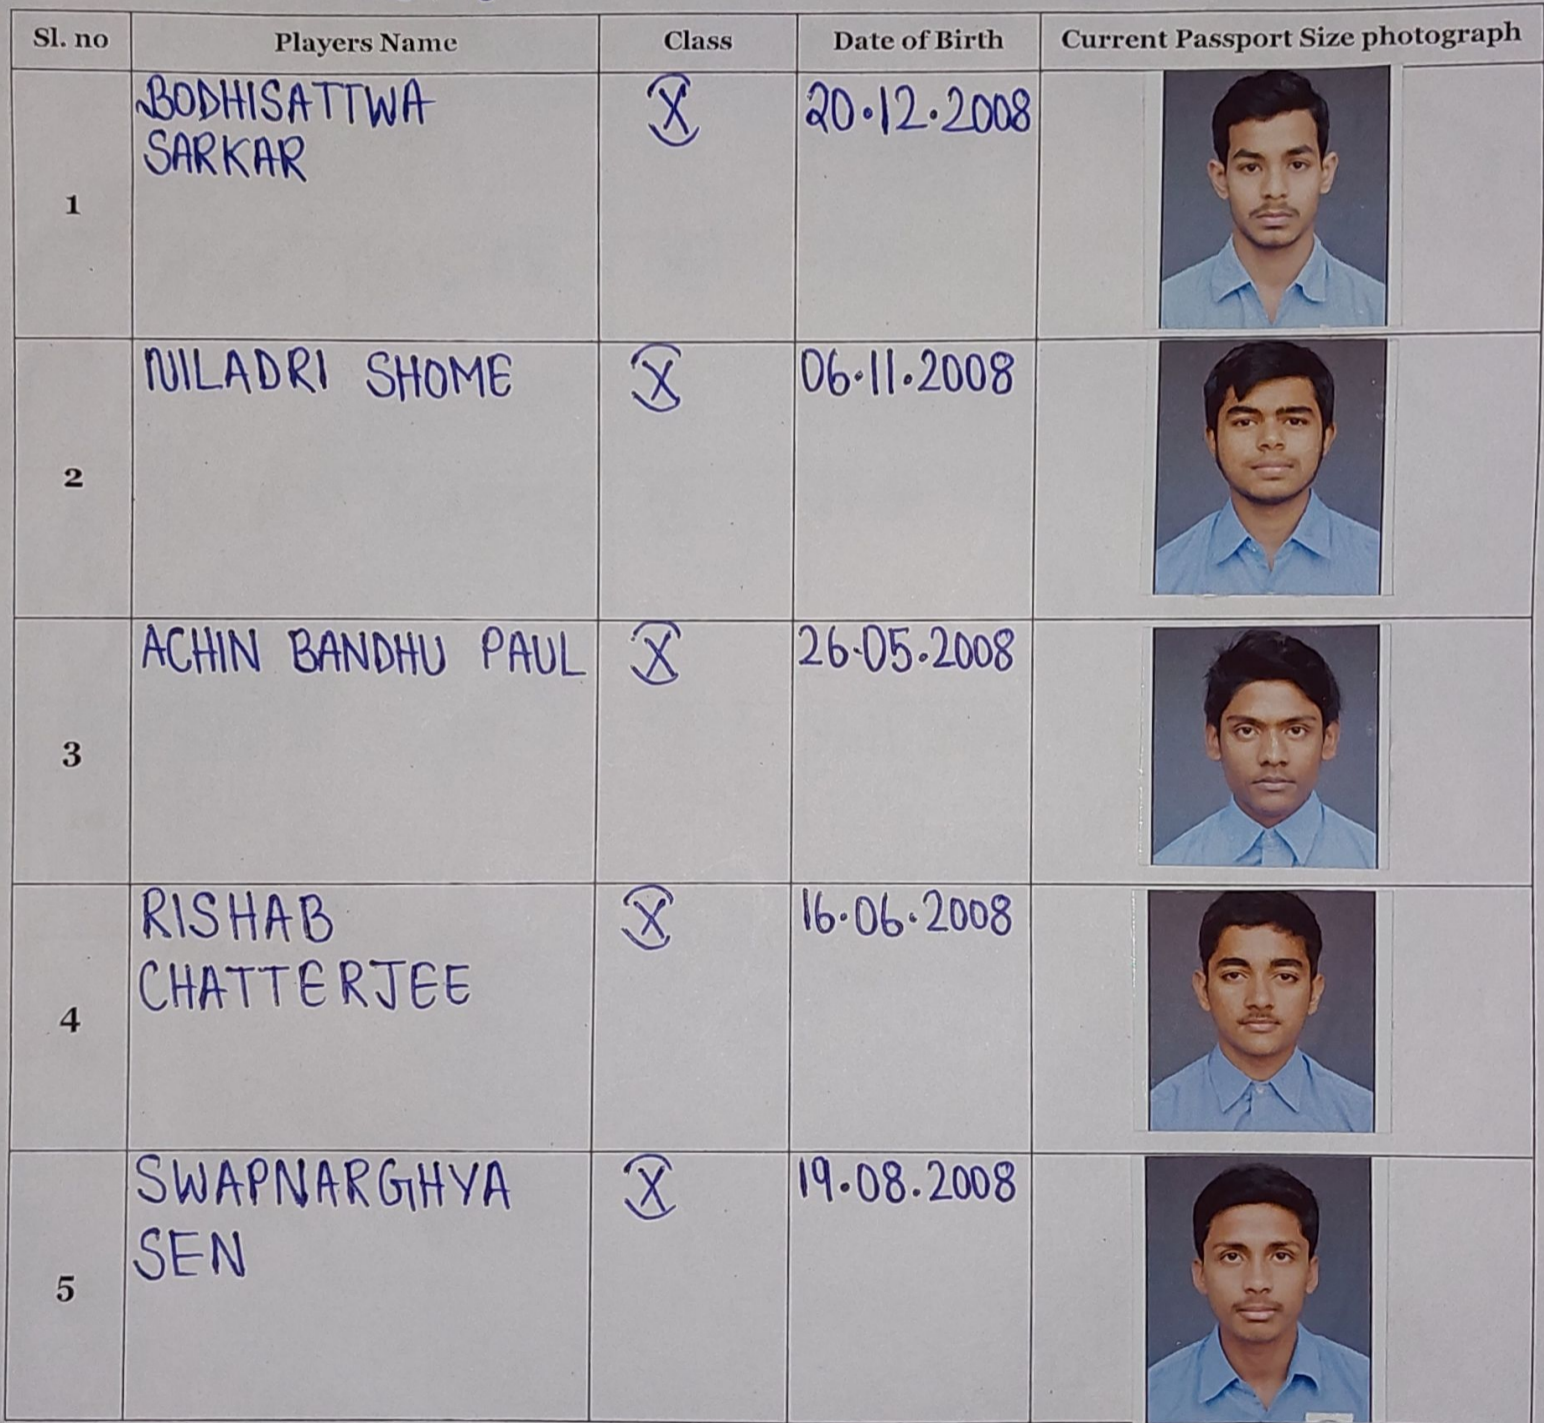 Sl. no Players Name Class Date of Birth Current Passport Size photograph
1 BODHISATTWA X 20.12.2008
SARKAR
2 NILADRI SHOME X 06.11.2008
3 ACHIN BANDHU PAUL X 26.05.2008
4 RISHAB X 16.06.2008
CHATTERJEE
5 SWAPNARGHYA X 19.08.2008
SEN